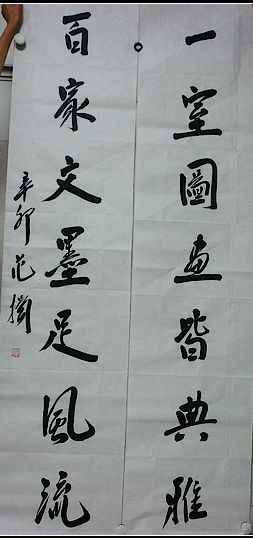 一室圖畫皆典雅
百家文墨足風流
辛卯范